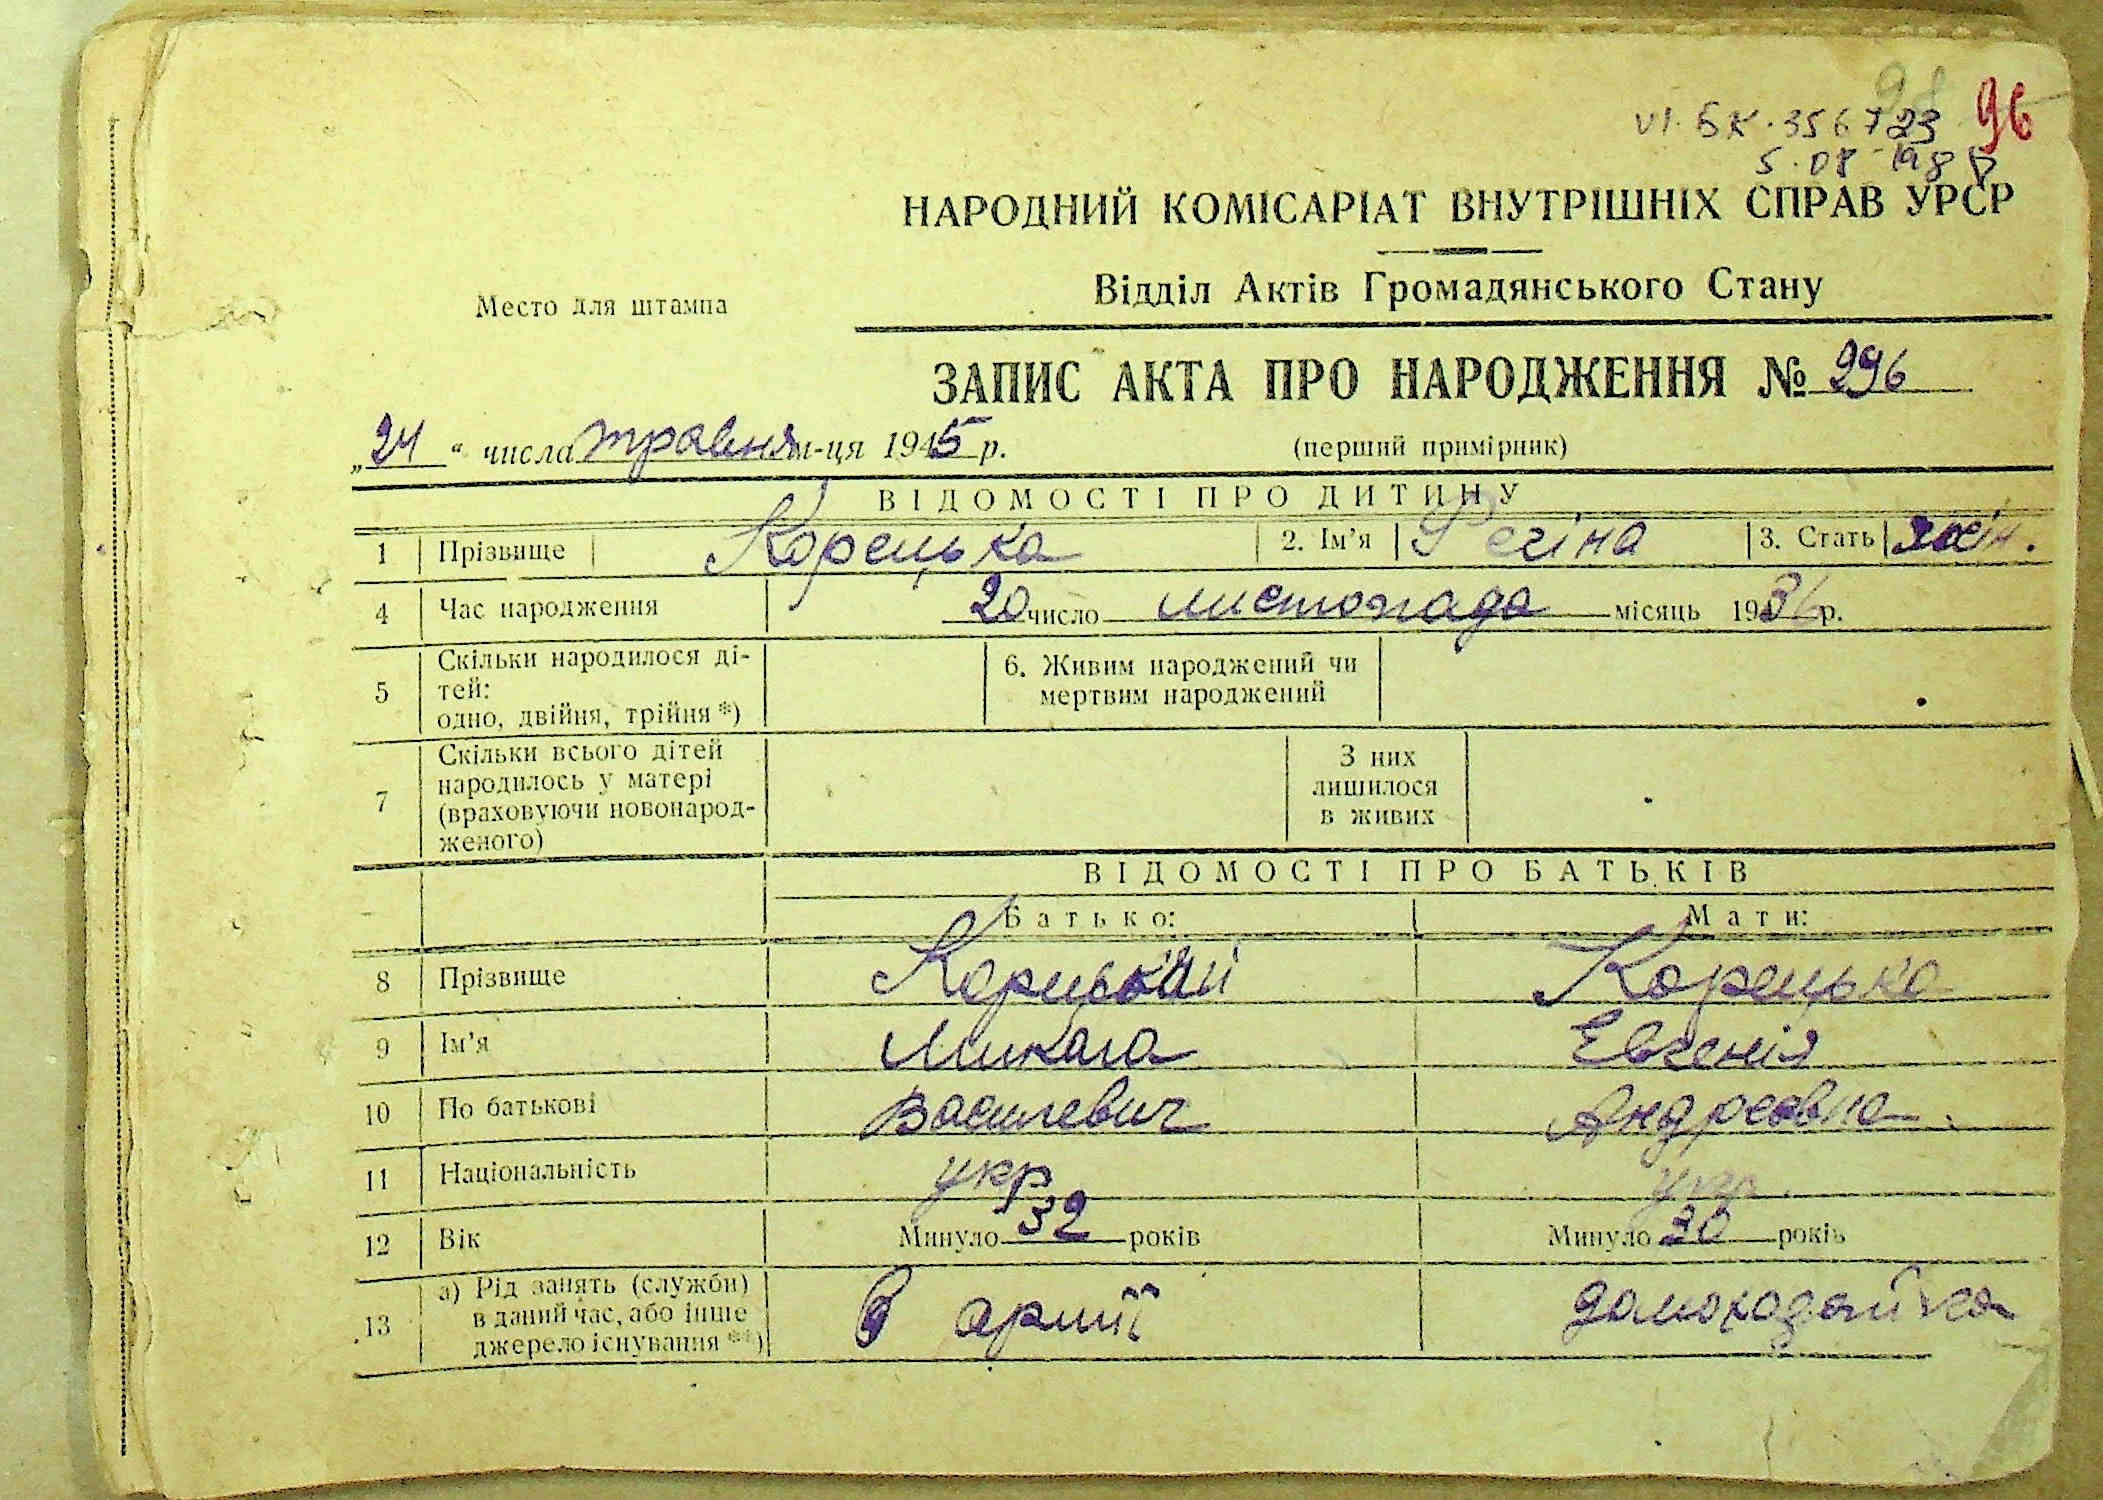 98 96
VI·БК·356723
5·08·198
НАРОДНИЙ КОМІСАРІАТ ВНУТРІШНІХ СПРАВ УРСР
Место для штампа
Відділ Актів Громадянського Стану
ЗАПИС АКТА ПРО НАРОДЖЕННЯ № 296
„24“ числа травня м-ця 1945 р. (перший примірник)
ВІДОМОСТІ ПРО ДИТИНУ
1 Прізвище Корецька 2. Ім'я Регіна 3. Стать жін.
4 Час народження 20 число листопада місяць 1936 р.
5 Скільки народилося ді-
тей:
одно, двійня, трійня *)
6. Живим народжений чи
мертвим народжений
7 Скільки всього дітей
народилось у матері
(враховуючи новонарод-
женого)
З них
лишилося
в живих
ВІДОМОСТІ ПРО БАТЬКІВ
Батько: Мати:
8 Прізвище Корецький Корецька
9 Ім'я Микола Евгенія
10 По батькові Василевич Андреевна
11 Національність укр укр.
12 Вік Минуло 32 років Минуло 30 років
13 а) Рід занять (служби)
в даний час, або інше
джерело існування **)
В армії домохозяйка